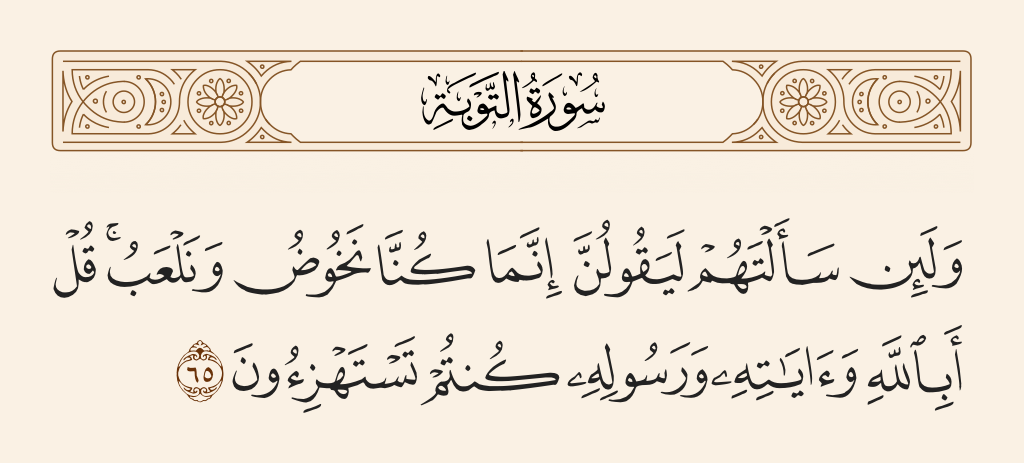 سُورَةُ التَّوۡبَةِ
وَلَئِن سَأَلۡتَهُمۡ لَيَقُولُنَّ إِنَّمَا كُنَّا نَخُوضُ وَنَلۡعَبُۚ قُلۡ
أَبِٱللَّهِ وَءَايَٰتِهِۦ وَرَسُولِهِۦ كُنتُمۡ تَسۡتَهۡزِءُونَ ٦٥